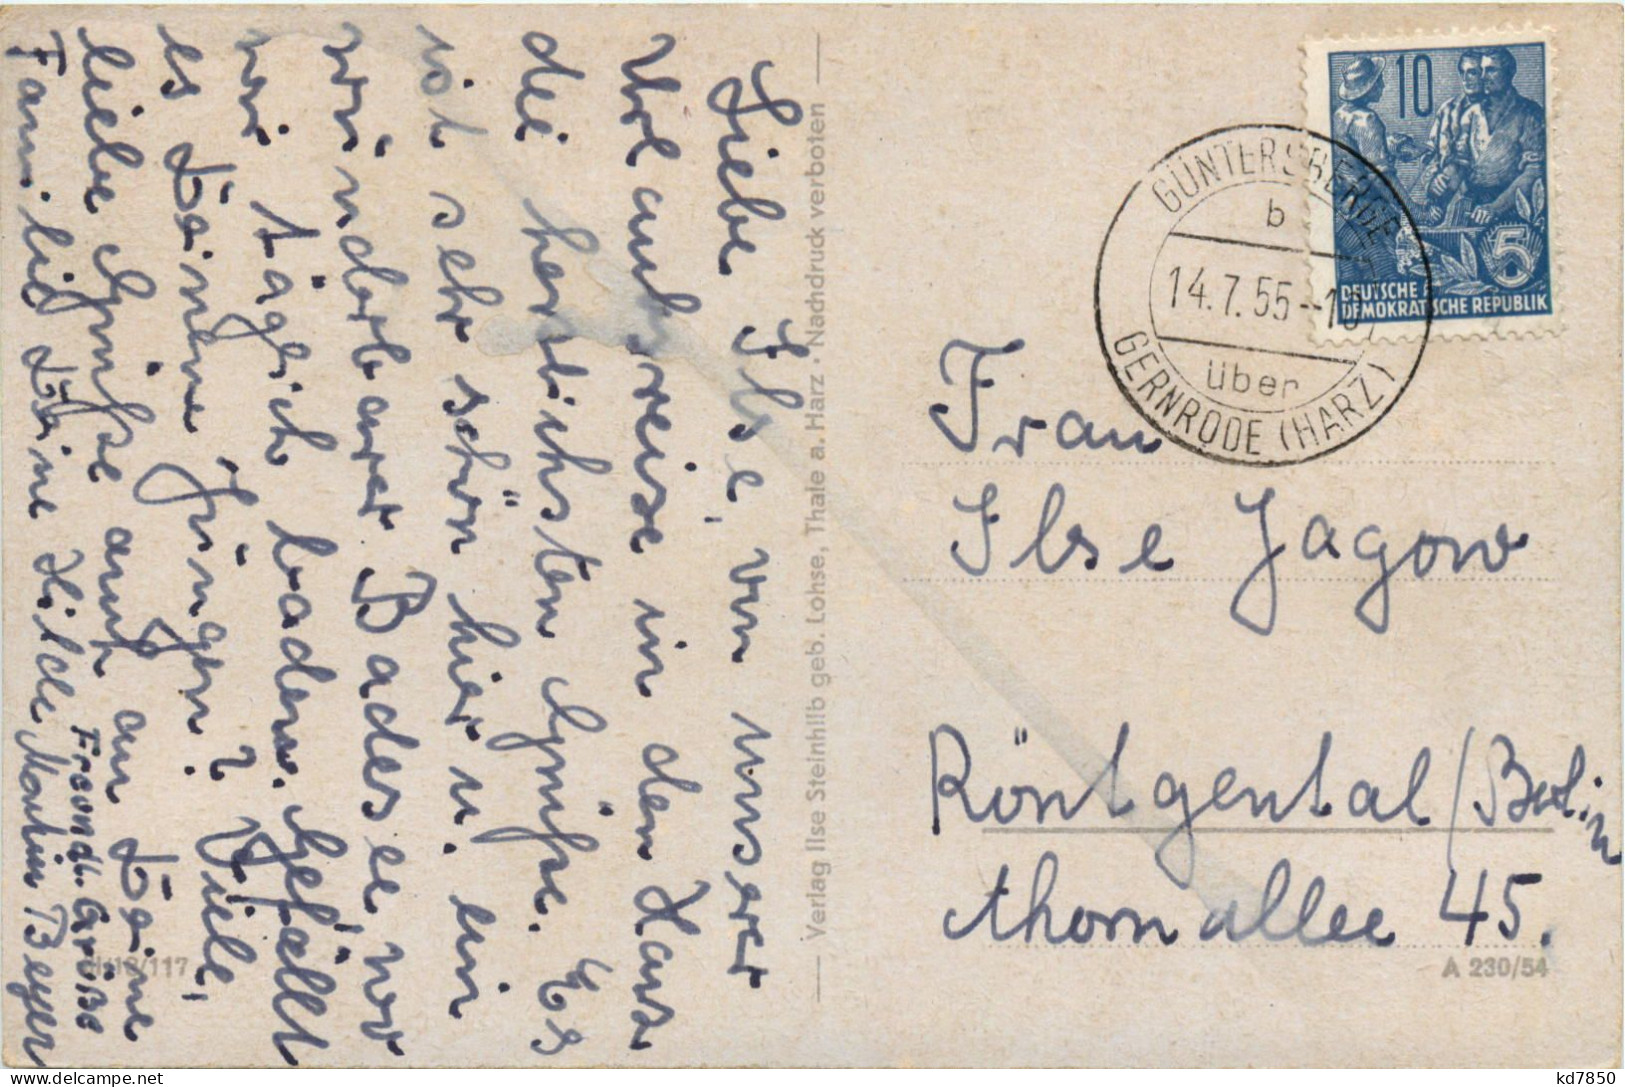 Liebe Ilse, von unserer
Urlaubsreise in den Harz
die herzlichsten Grüße. Es
ist sehr schön hier u. ein
wunderbarer Badesee, wo
wir täglich baden. Gefällt
es Deinem Jüngen? Viele,
liebe Grüße auch an Deine
Familie Deine Hilde
Freundl. Grüße
Martin Beyer
H/12/117
Verlag Ilse Steinhilb geb. Lohse, Thale a. Harz • Nachdruck verboten
10
5
DEUTSCHE
DEMOKRATISCHE REPUBLIK
GÜNTERSBERGE
b
14.7.55--18
über
GERNRODE (HARZ)
Frau
Ilse Jagow
Röntgental/Berlin
Ahornallee 45.
A 230/54
kd7850